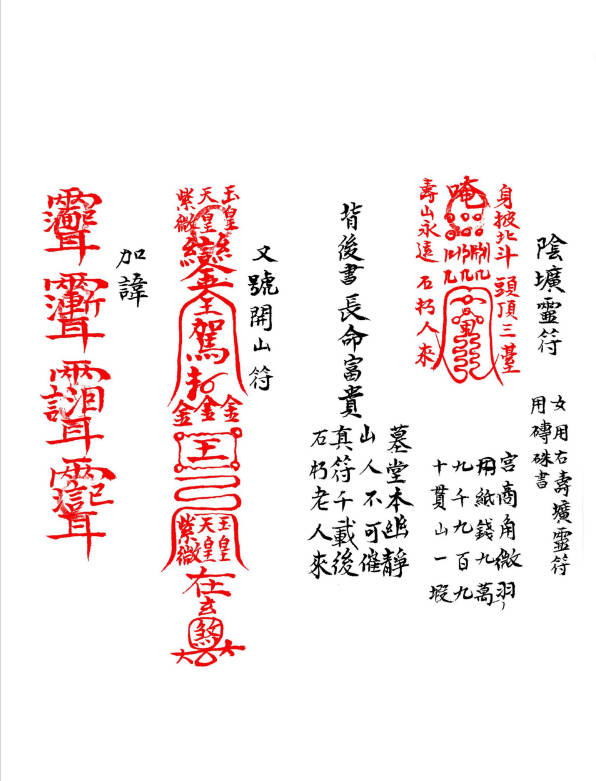 陰壙靈符
女用石壽壙靈符
用磚硃書
身披北斗頭頂三臺
唵
壽山永遠石朽人來
宮商角微羽
用紙錢九萬
九千九百九
十貫山一
背後書長命富貴
墓堂本幽靜
山人不可催
真符千載後
石朽老人來
又號開山符
玉皇
天皇
紫微
駕
金金金
王
玉皇
天皇
紫微
在
煞
加諱